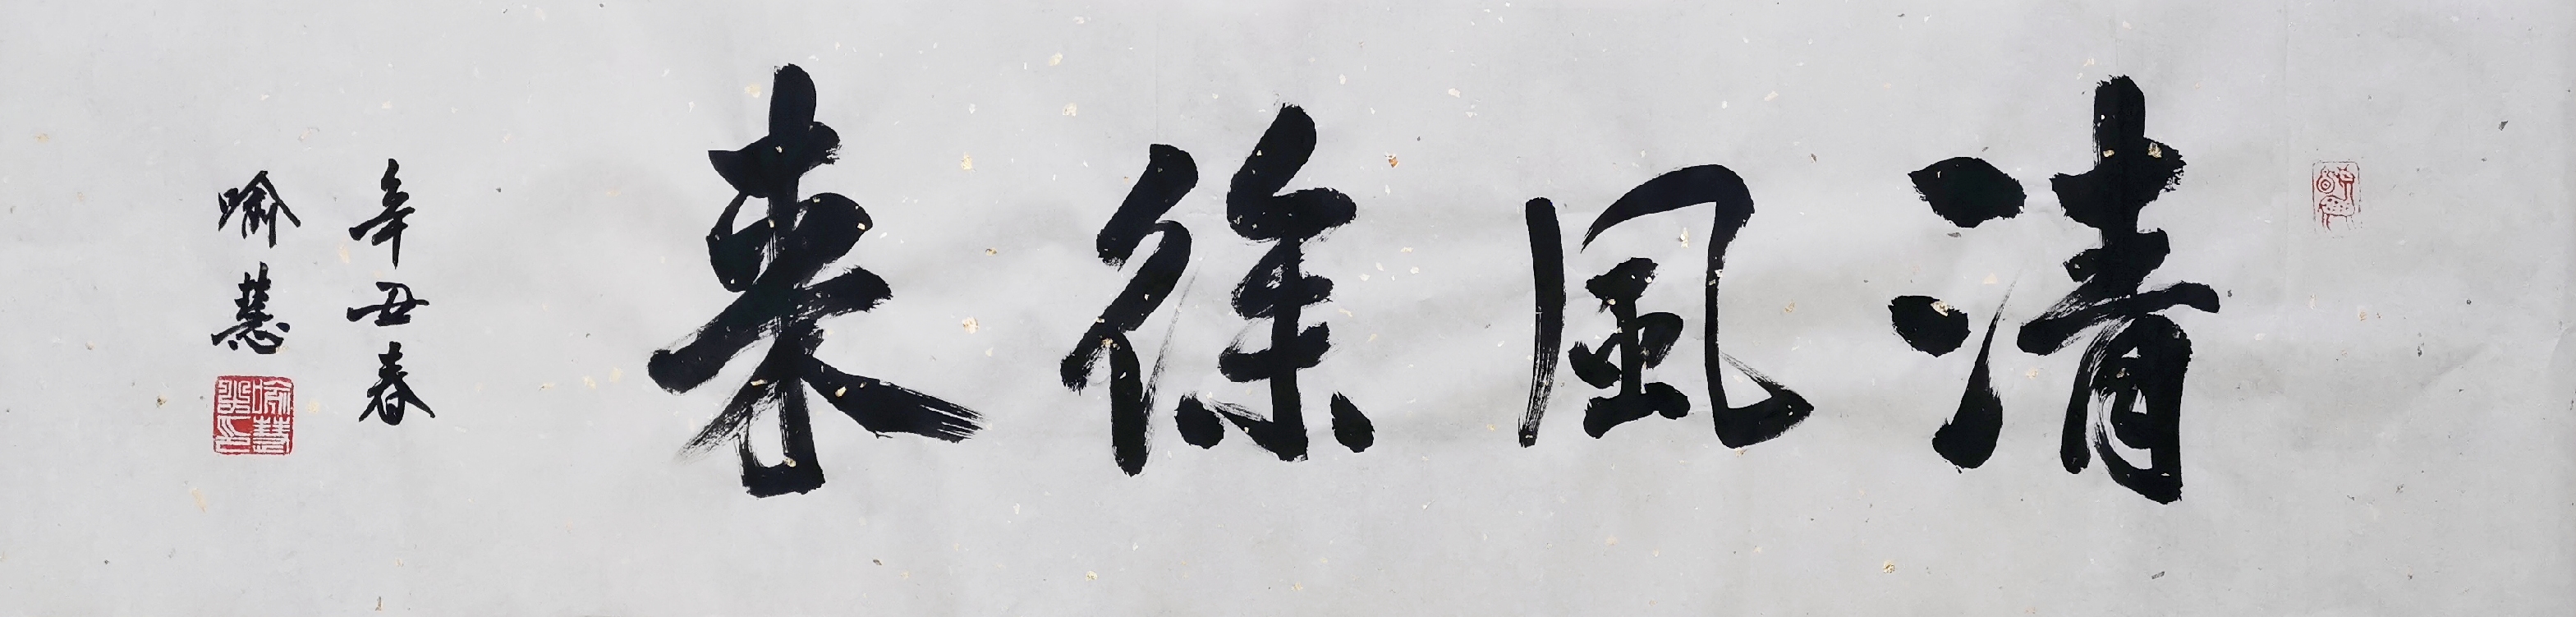 清風徐来
辛丑春
喻慧
喻慧